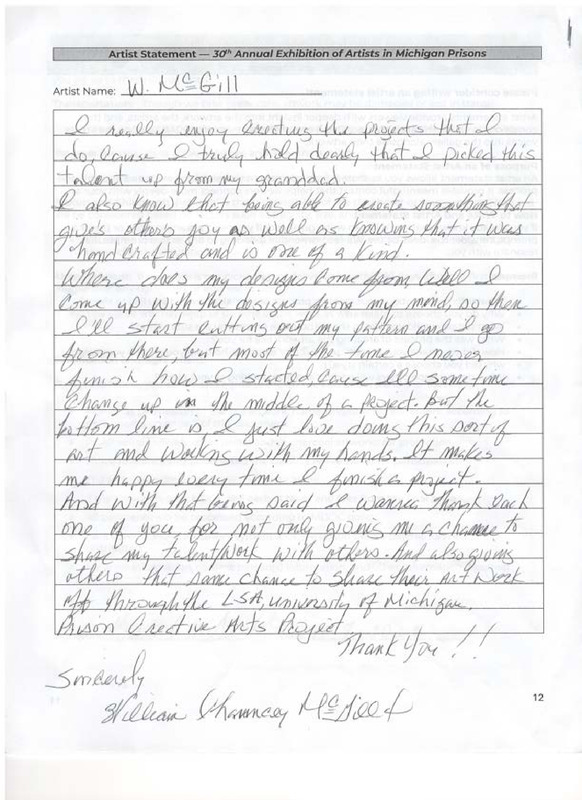 Artist Statement — 30th Annual Exhibition of Artists in Michigan Prisons
Artist Name: W. McGill
I really enjoy creating the projects that I
do, cause I truly hold dearly that I picked this
talent up from my granddad.
I also know that being able to create something that
give's others joy as well as knowing that it was
handcrafted and is one of a kind.
Where does my designs come from, Well I
come up with the designs from my mind, so then
I'll start cutting out my pattern and I go
from there, but most of the time I never
finish how I started, cause I'll sometime
change up in the middle of a project. But the
bottom line is, I just love doing this sort of
art and working with my hands. It makes
me happy every time I finish a project.
And with that being said I wanna thank each
one of you, for not only giving me a chance to
share my talent/work with others. And also giving
others that same chance to share their art work
through the LSA, University of Michigan.
Prison Creative Arts Project
Thank You!!
Sincerely
William Chauncey McGill
12